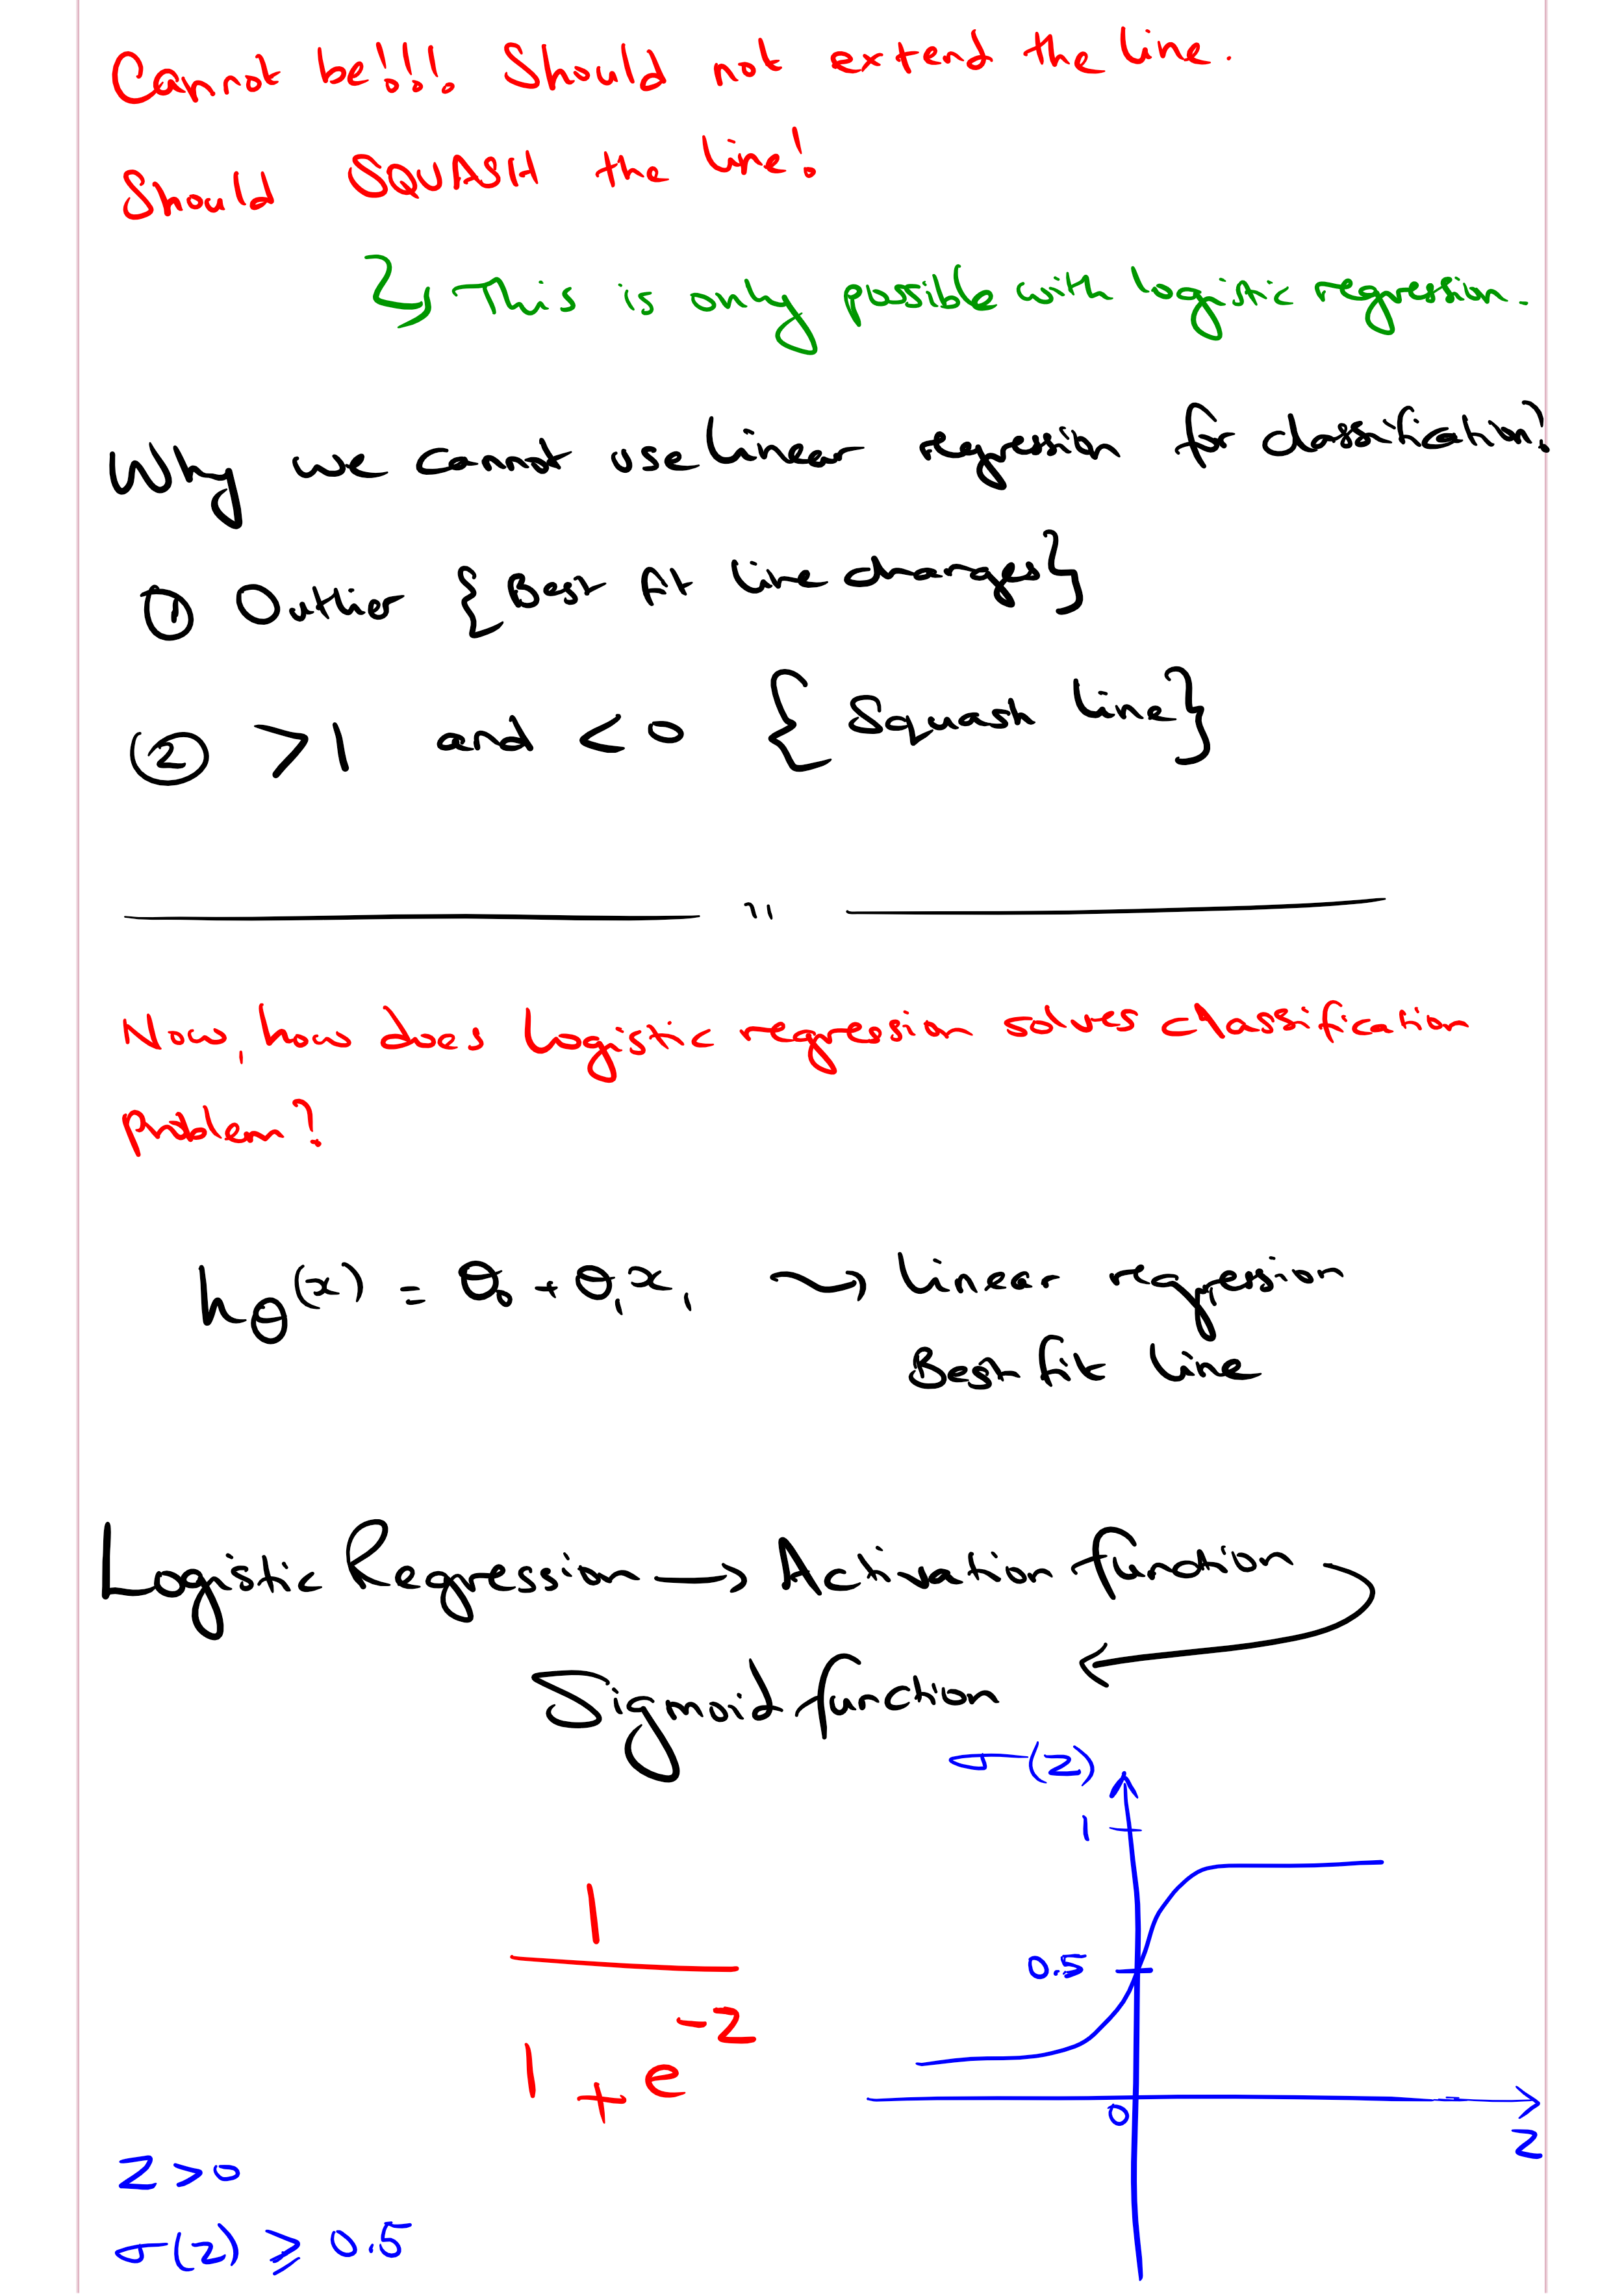 Cannot be!!! Should not extend the line.
Should SQUASH the line!
} This is only possible with logistic regression.
Why we cannot use linear regression for classification?
① Outlier {Best fit line changes}
② >1 and <0 {Squash line}
"
Now, how does logistic regression solves classification
problem?
hθ(x) = θ0 + θ1x1 ⤳ linear regression
Best fit line
Logistic Regression → Activation function
Sigmoid function
σ(z)
1
0.5
0
z
1
1 + e^-z
z > 0
σ(z) ⩾ 0.5